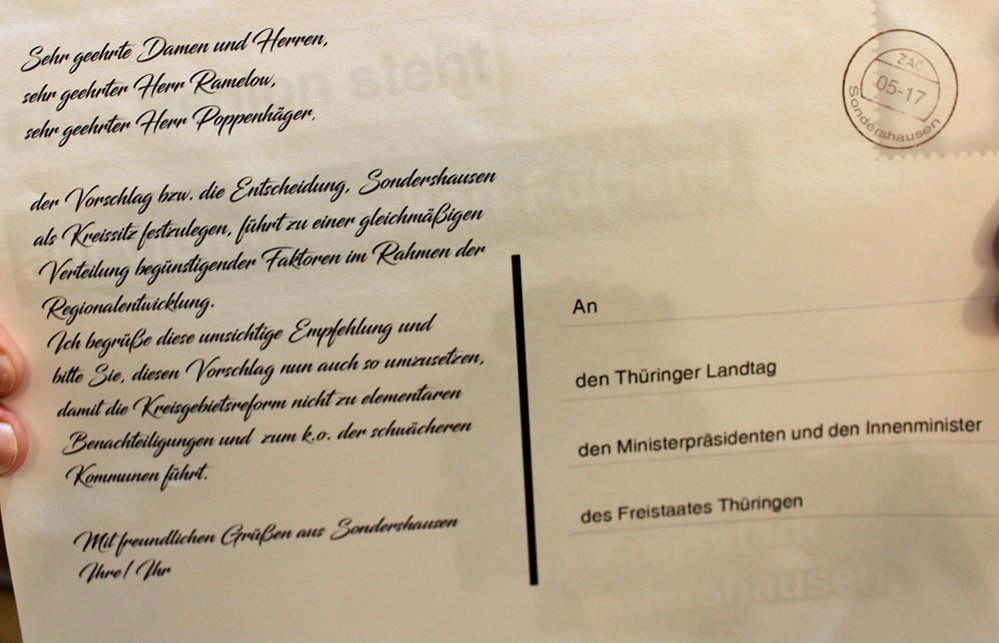 Sehr geehrte Damen und Herren,
sehr geehrter Herr Ramelow,
sehr geehrter Herr Poppenhäger,
der Vorschlag bzw. die Entscheidung, Sondershausen
als Kreissitz festzulegen, führt zu einer gleichmäßigen
Verteilung begünstigender Faktoren im Rahmen der
Regionalentwicklung.
Ich begrüße diese umsichtige Empfehlung und
bitte Sie, diesen Vorschlag nun auch so umzusetzen,
damit die Kreisgebietsreform nicht zu elementaren
Benachteiligungen und zum k.o. der schwächeren
Kommunen führt.
Mit freundlichen Grüßen aus Sondershausen
Ihre/ Ihr
ZAC
05-17
Sondershausen
An
den Thüringer Landtag
den Ministerpräsidenten und den Innenminister
des Freistaates Thüringen